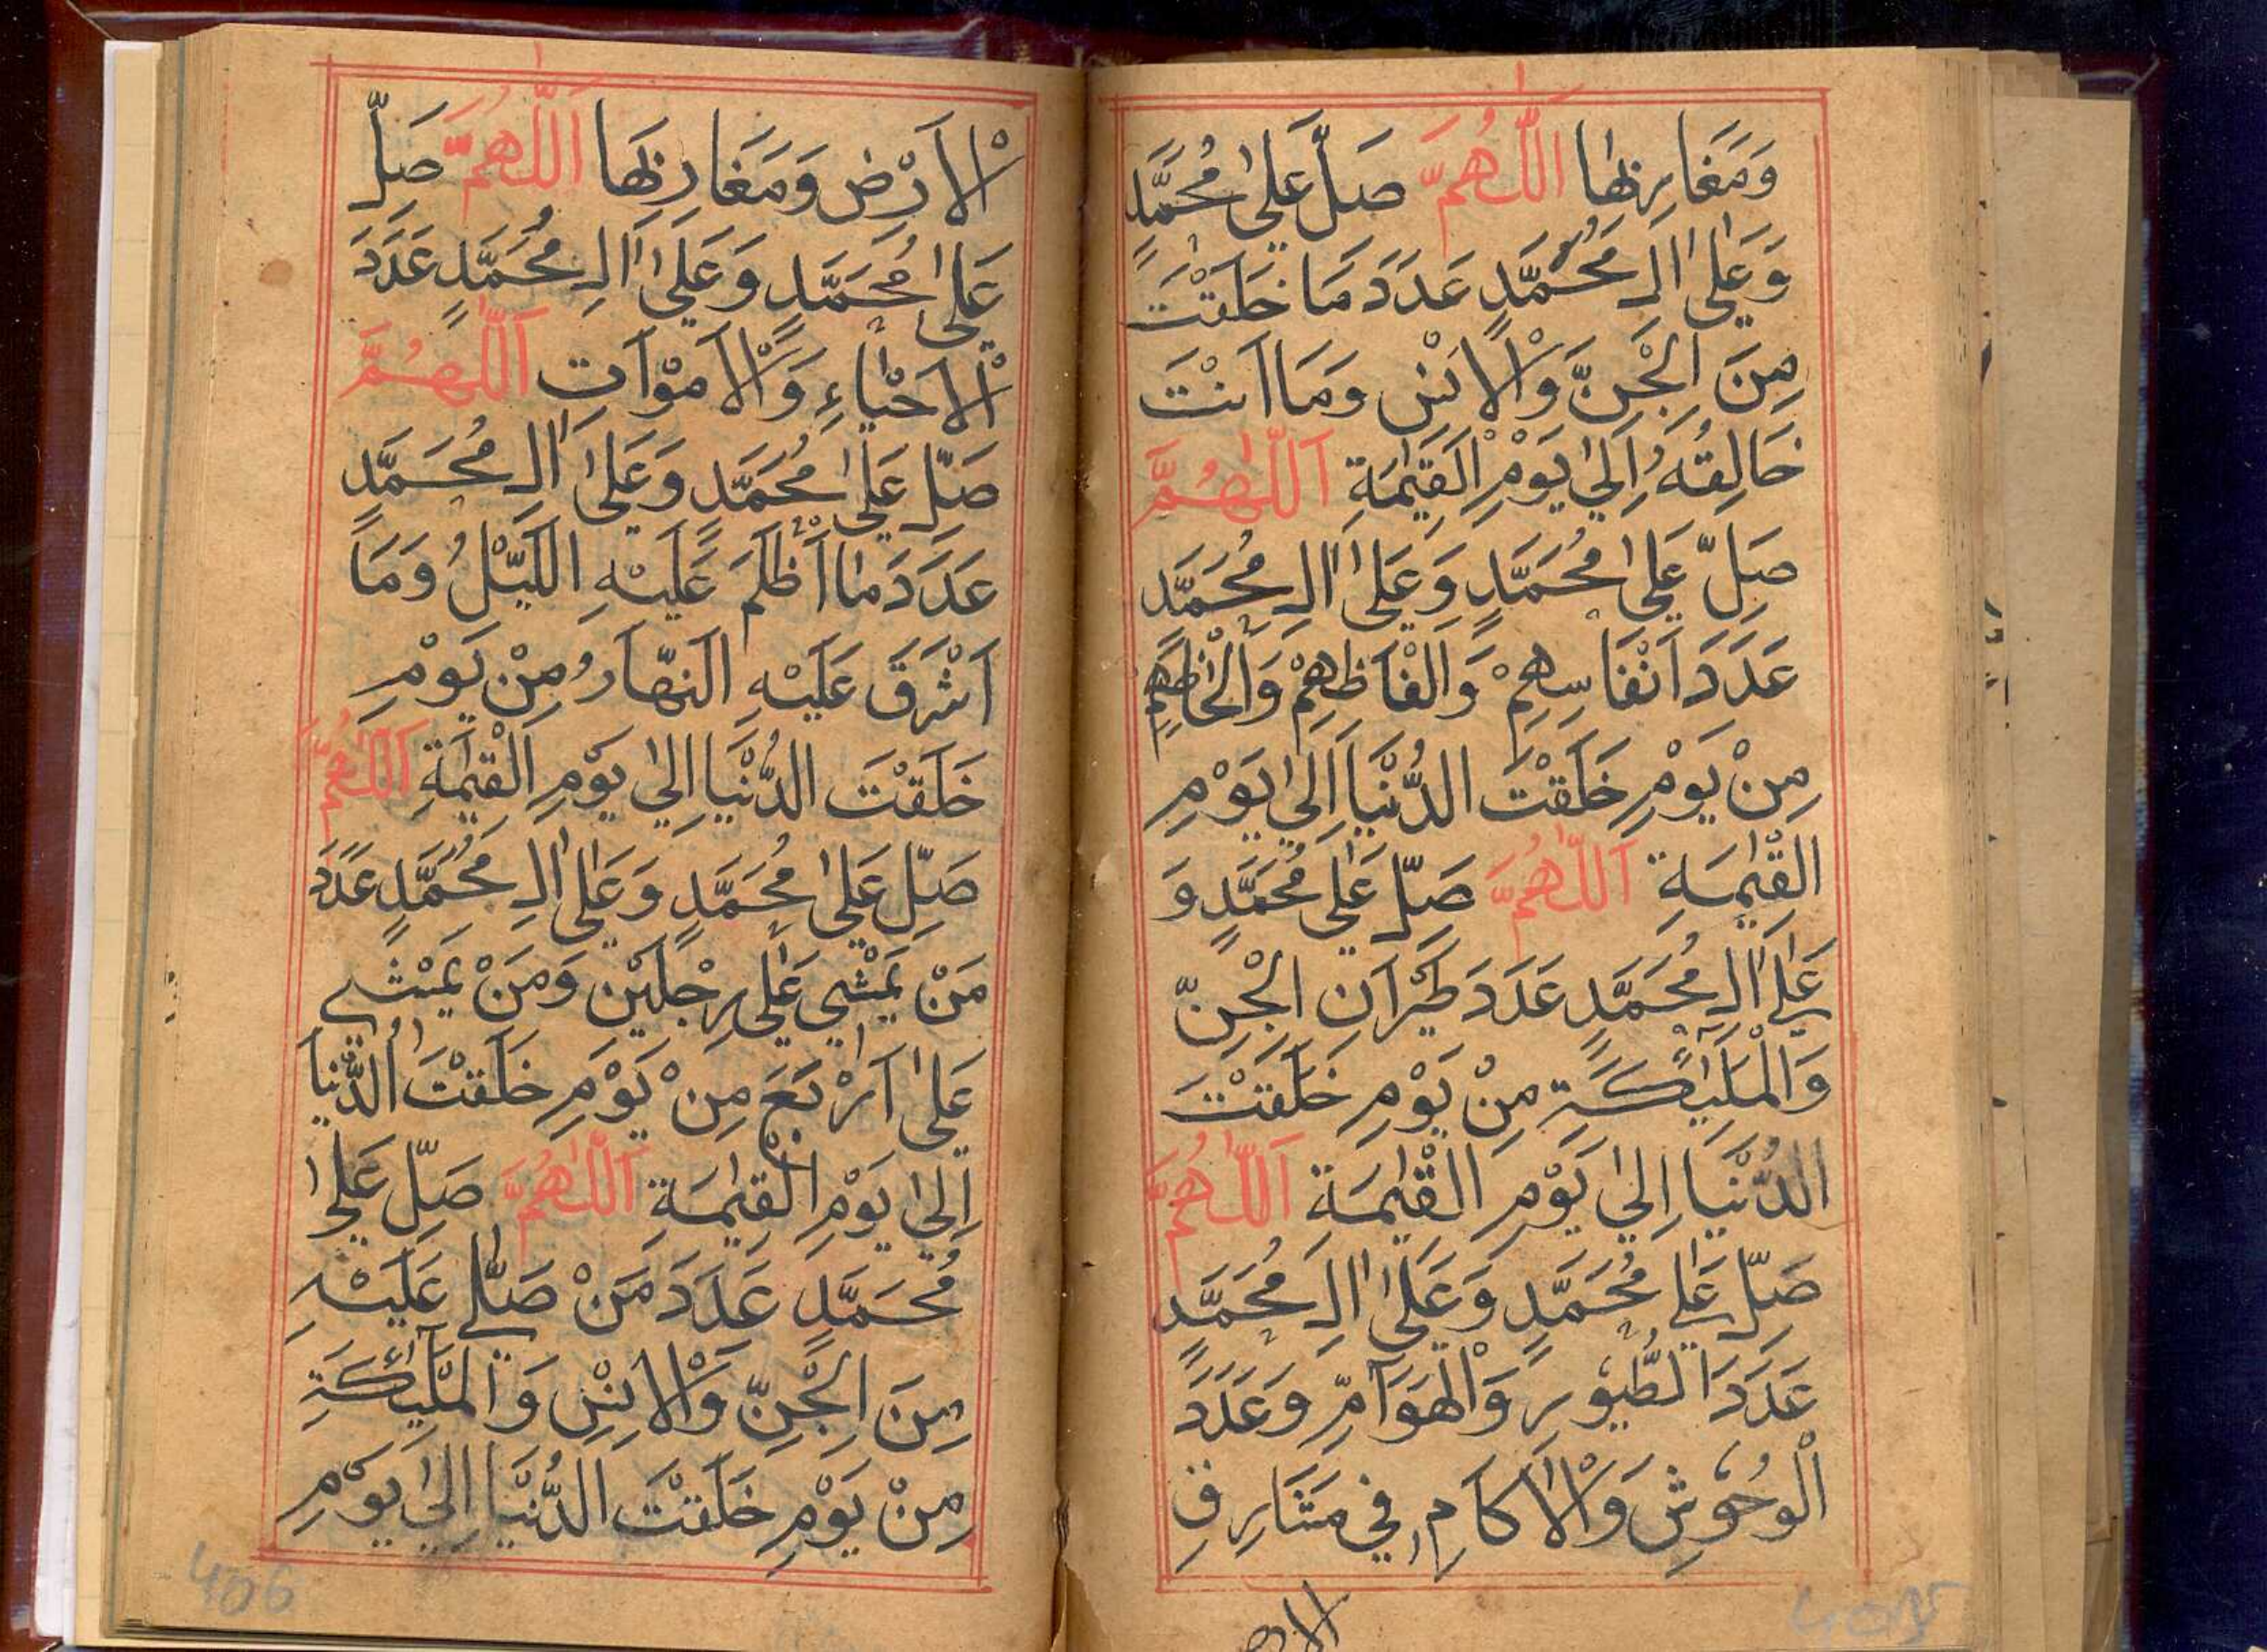 وَمَغَارِبِهَا اَللّٰهُمَّ صَلِّ عَلٰى مُحَمَّدٍ
وَعَلٰى اٰلِ مُحَمَّدٍ عَدَدَ مَا خَلَقْتَ
مِنَ الْجِنِّ وَالْاِنْسِ وَمَا اَنْتَ
خَالِقُهُ اِلٰى يَوْمِ الْقِيٰمَةِ اَللّٰهُمَّ
صَلِّ عَلٰى مُحَمَّدٍ وَعَلٰى اٰلِ مُحَمَّدٍ
عَدَدَ اَنْفَاسِهِمْ وَاَلْفَاظِهِمْ وَاَلْحَاظِهِمْ
مِنْ يَوْمِ خَلَقْتَ الدُّنْيَا اِلٰى يَوْمِ
الْقِيٰمَةِ اَللّٰهُمَّ صَلِّ عَلٰى مُحَمَّدٍ وَ
عَلٰى اٰلِ مُحَمَّدٍ عَدَدَ طَيَرَانِ الْجِنِّ
وَالْمَلٰئِكَةِ مِنْ يَوْمِ خَلَقْتَ
الدُّنْيَا اِلٰى يَوْمِ الْقِيٰمَةِ اَللّٰهُمَّ
صَلِّ عَلٰى مُحَمَّدٍ وَعَلٰى اٰلِ مُحَمَّدٍ
عَدَدَ الطُّيُوْرِ وَالْهَوَآمِّ وَعَدَدَ
الْوُحُوْشِ وَالْاٰكَامِ فِي مَشَارِقِ
الارض
الْاَرْضِ وَمَغَارِبِهَا اَللّٰهُمَّ صَلِّ
عَلٰى مُحَمَّدٍ وَعَلٰى اٰلِ مُحَمَّدٍ عَدَدَ
الْاَحْيَاءِ وَالْاَمْوَاتِ اَللّٰهُمَّ
صَلِّ عَلٰى مُحَمَّدٍ وَعَلٰى اٰلِ مُحَمَّدٍ
عَدَدَ مَا اَظْلَمَ عَلَيْهِ اللَّيْلُ وَمَا
اَشْرَقَ عَلَيْهِ النَّهَارُ مِنْ يَوْمِ
خَلَقْتَ الدُّنْيَا اِلٰى يَوْمِ الْقِيٰمَةِ اَللّٰهُمَّ
صَلِّ عَلٰى مُحَمَّدٍ وَعَلٰى اٰلِ مُحَمَّدٍ عَدَدَ
مَنْ يَمْشِي عَلٰى رِجْلَيْنِ وَمَنْ يَمْشِي
عَلٰى اَرْبَعَ مِنْ يَوْمِ خَلَقْتَ الدُّنْيَا
اِلٰى يَوْمِ الْقِيٰمَةِ اَللّٰهُمَّ صَلِّ عَلٰى
مُحَمَّدٍ عَدَدَ مَنْ صَلّٰى عَلَيْهِ
مِنَ الْجِنِّ وَالْاِنْسِ وَالْمَلٰئِكَةِ
مِنْ يَوْمِ خَلَقْتَ الدُّنْيَا اِلٰى يَوْمِ
406